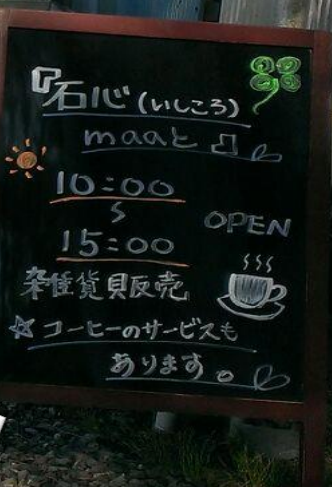 『石心(いしころ)
maaと』
10:00
~
15:00
OPEN
雑貨販売
☆コーヒーのサービスも
あります。